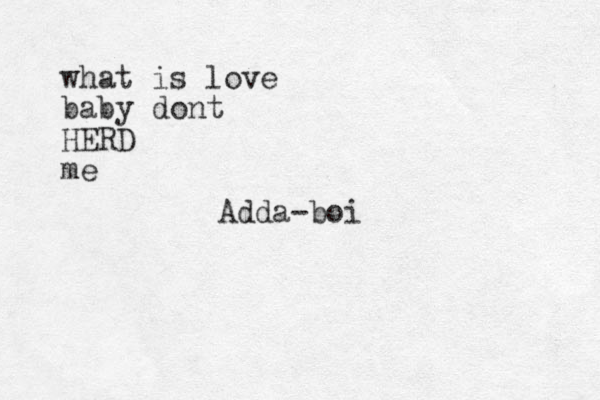 what is love
baby dont
HERD
me
Adda-boi